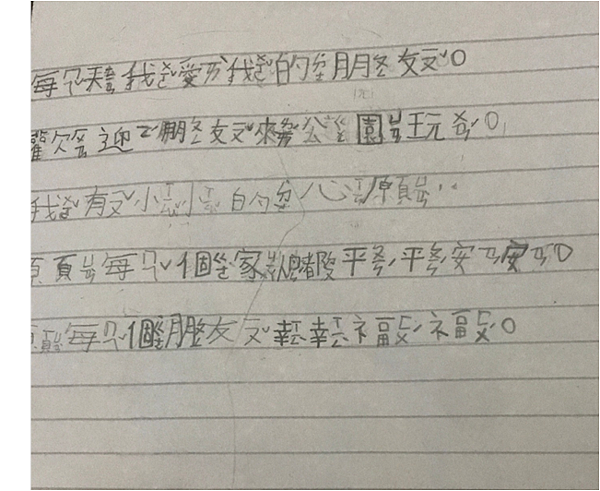 每天我愛我的朋友。
歡迎朋友來公園玩。
我有小小的心願：
願每個家都平平安安。
願每個朋友幸幸福福。